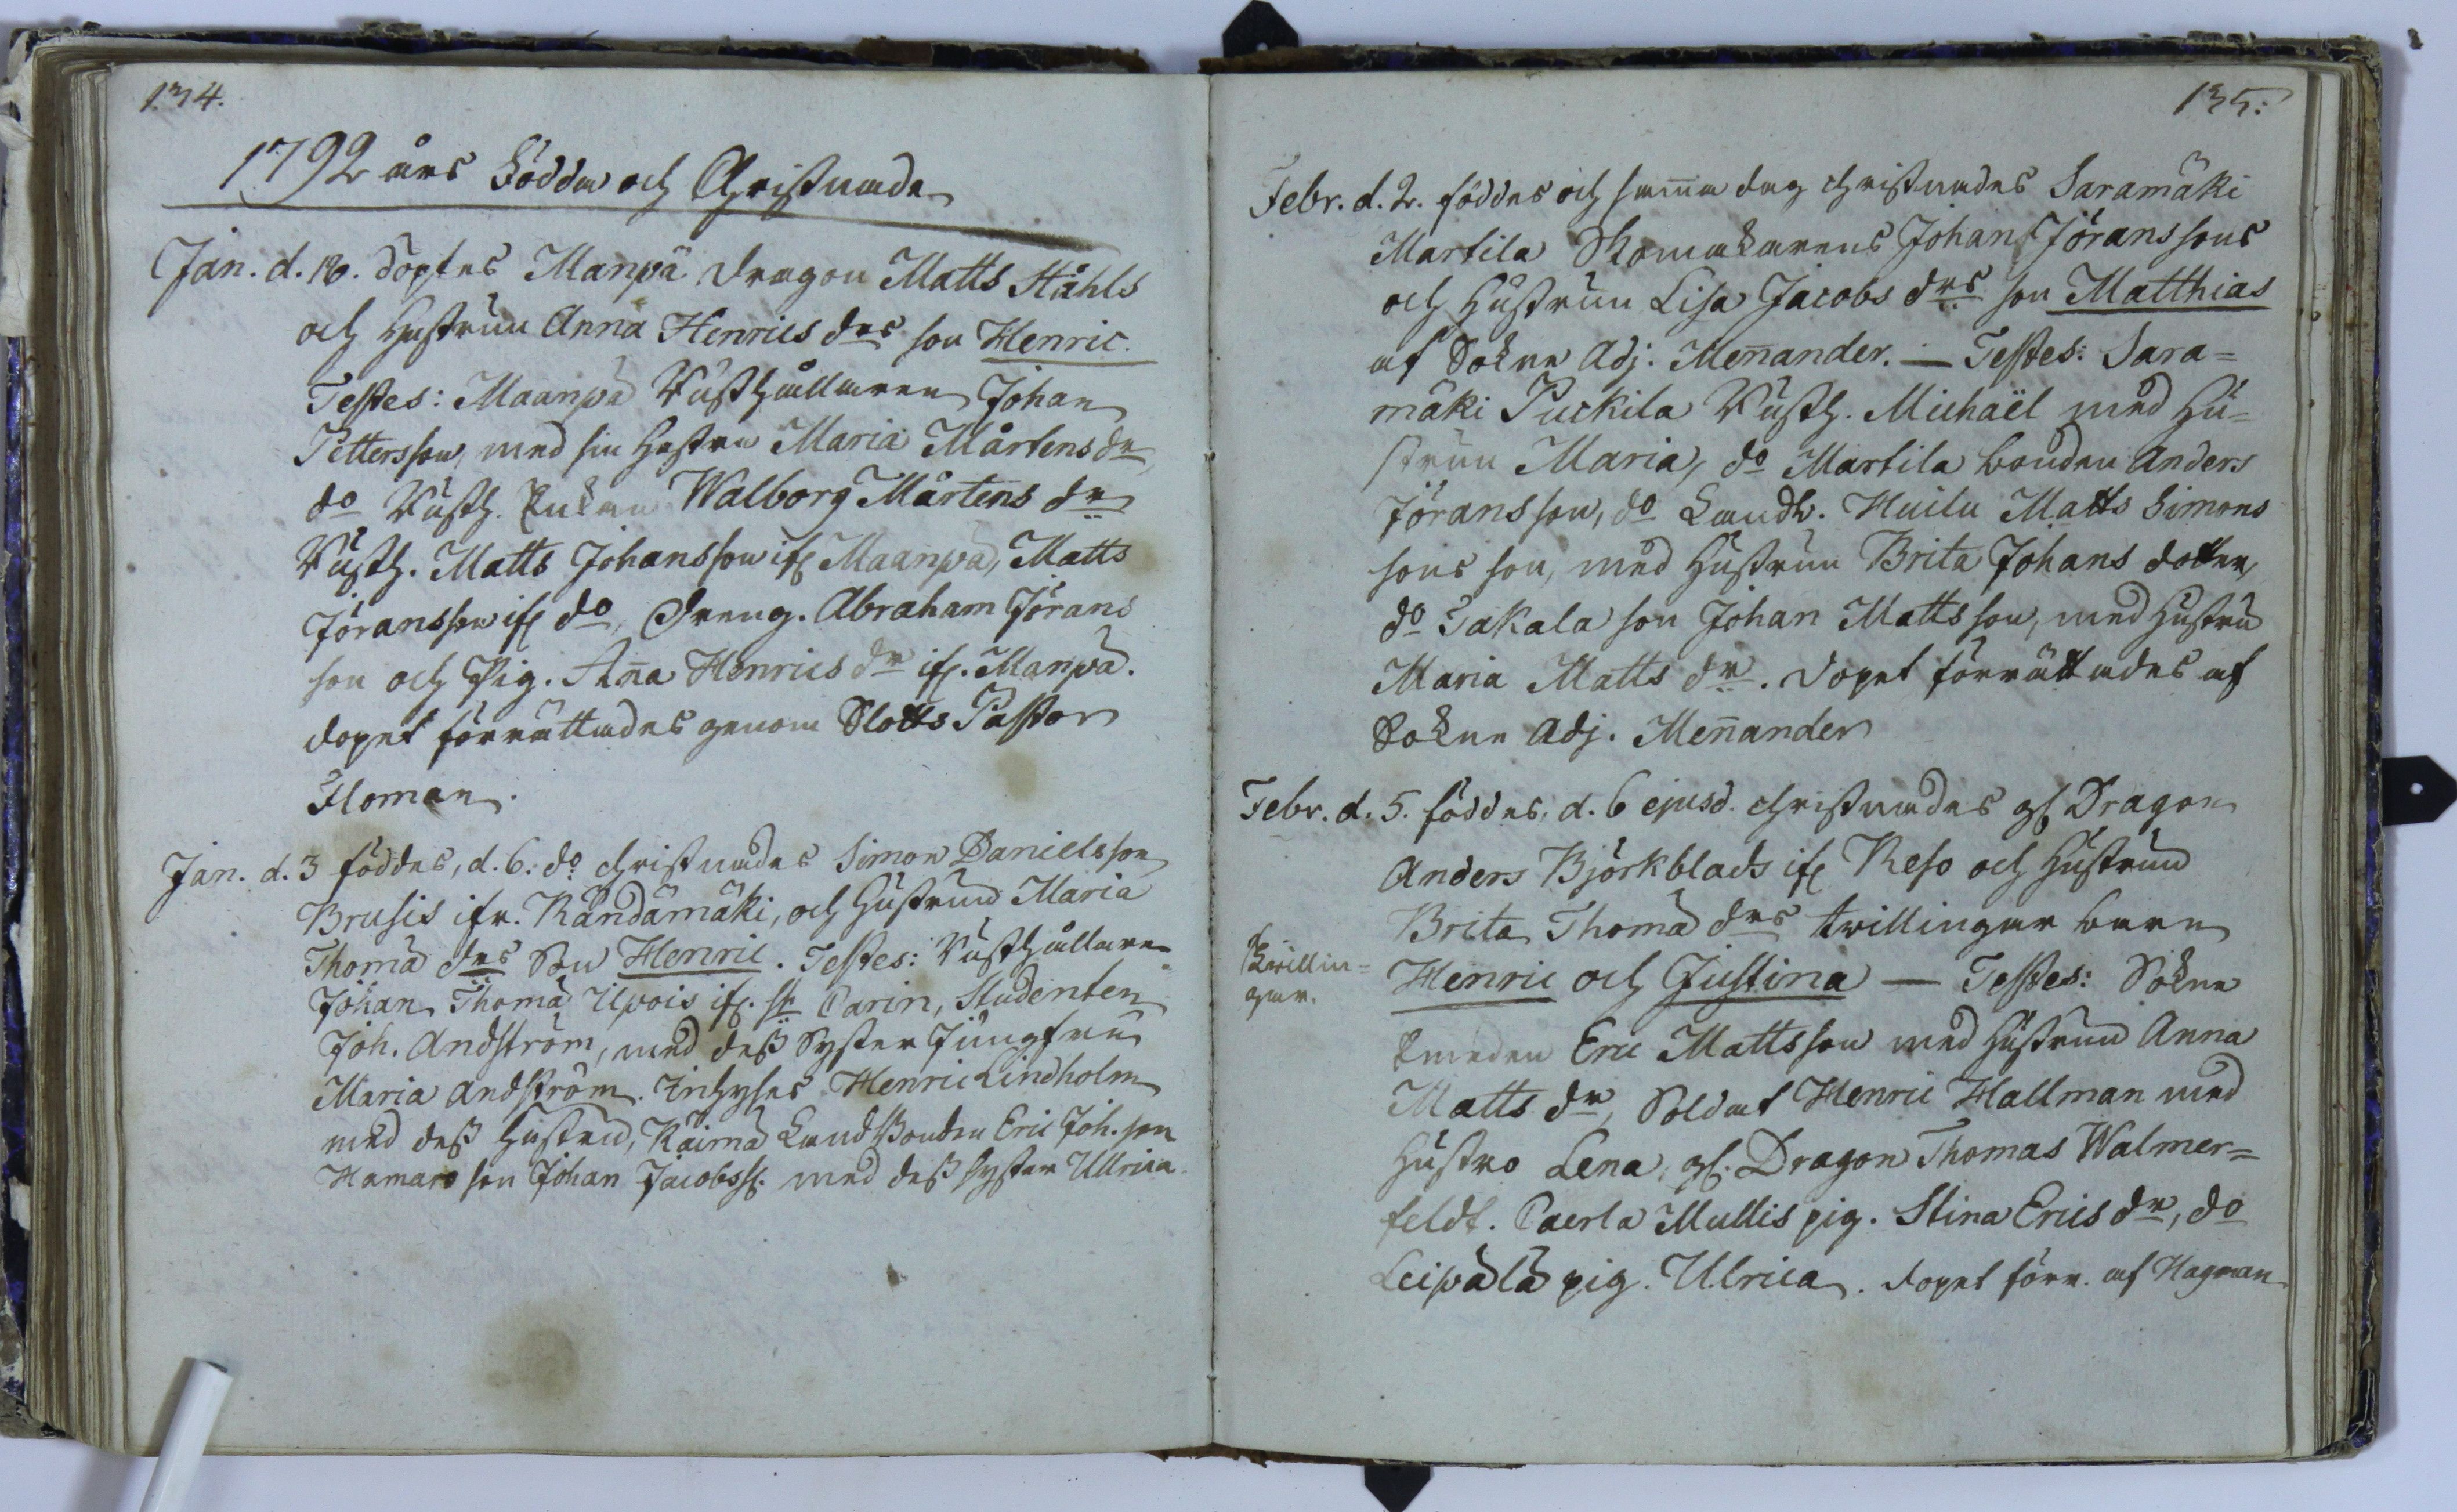 134.
1792 års Födda och Christnade
Jan. d. 18. döptes Manpä Dragon Matts Ståhls
och hustrun Anna Henrics drs son Henric.
Testes: Maanpä Rusthållaren Johan
Pettersson, med sin hustru Maria Mårtens dr
do Rusth. Enkan Walborg Mårtens dr
Rusth. Matts Johansson ifr Maanpä, Matts
Jöransson ifr do, Dreng. Abraham Jörans
son och Pig. Anna Henrics dr ifr. Manpä.
dopet förrättades genom Slotts Pastor
Floman.
Jan. d. 3 föddes, d. 6. do christnades Simon Danielsson
Brusis ifr. Rändämäki, och Hustruns Maria
Thomä drs Son Henric. Testes: Rusthållaren
Johan Thomä Upois ifr. St Carin, Studenten
Joh. Andström, med dess Syster Jungfru
Maria Andström. Inhyses Henric Lindholm
med dess Hustru, Räimä Landbonden Eric Joh. son
Hamaro son Johan Jacobss. med dess syster Ullrica.
135.
Febr. d. 2. föddes och samma dag christnades Saramäki
Martila Skomakarens Johan Jöranssons
och Hustrun Lisa Jacobs drs son Matthias
af Sokne Adj. Mennander. — Testes: Sara=
mäki Puckila Rusth. Michaël med Hu=
strun Maria, do Martila bonden Anders
Jöransson, do Landb. Huilu Matts Simons
sons son, med Hustrun Brita Johans dotter,
do Takala son Johan Mattsson, med Hustru
Maria Matts dr. Dopet förrättades af
Sokne Adj. Mennander
Febr. d. 5. föddes, d. 6 ejusd. christnades gl Dragon
Anders Björkblads ifr Reso och Hustruns
Brita Thomä drs tvillingar barn
Tvillin=
gar.
Henric och Justina — Testes: Sokne
smeden Eric Mattsson med Hustrun Anna
Matts dr, Soldat Henric Hallman med
Hustro Lena, gl. Dragon Thomas Walmer=
feldt. Caerla Mullis pig. Stina Erics dr, do
Leipälä pig. Ulrica. Dopet förr. af Hagman